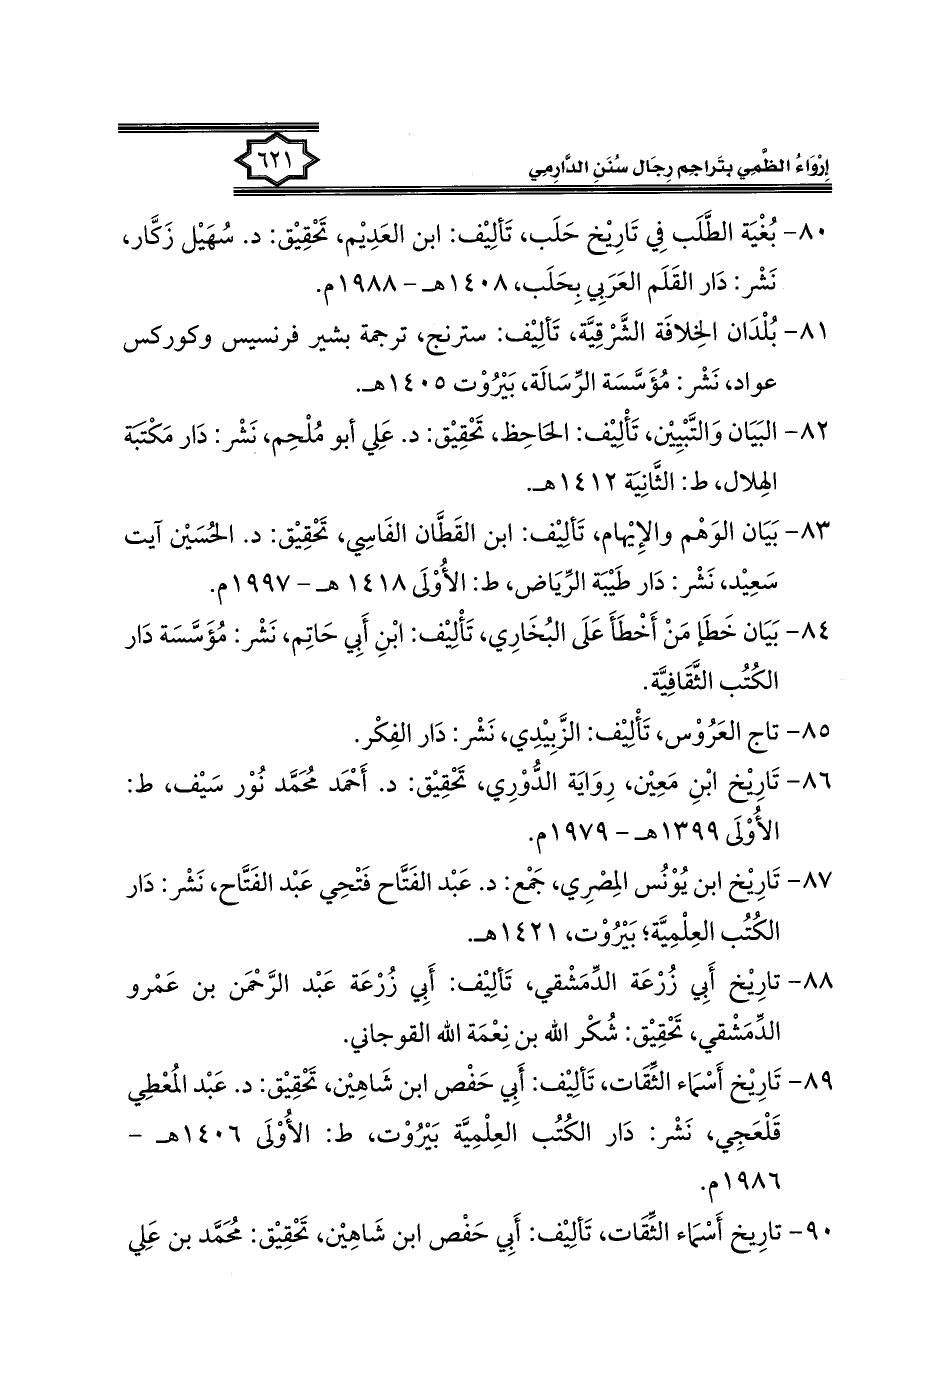 إِرْوَاءُ الظَّمِي بِتَراجم رِجَال سُنَنِ الدَّارِمِي
٦٢١
٨٠- بُغْيَة الطَّلَب فِي تَارِيْخ حَلَب، تَأليْف: ابن العَدِيْم، تَحْقِيْق: د. سُهَيْل زَكَّار،
نَشْر: دَار القَلَم العَرَبِي بِحَلَب، ١٤٠٨هـ - ١٩٨٨م.
٨١- بُلْدَان الخِلافَة الشَّرْقِيَّة، تَأليْف: سترنج، ترجمة بشير فرنسيس وكوركس
عواد، نَشْر: مُؤَسَّسَة الرِّسَالَة، بَيْرُوْت ١٤٠٥هـ.
٨٢- البَيَان وَالتَّبْيِيْن، تَأْلِيْف: الجَاحِظ، تَحْقِيْق: د. عَلِي أبو مُلْحِم، نَشْر: دَار مَكْتَبَة
الهِلال، ط: الثَّانِيَة ١٤١٢هـ.
٨٣- بَيَان الوَهْم والإِيْهام، تَأليْف: ابن القَطَّان الفَاسِي، تَحْقِيْق: د. الحُسَيْن آيت
سَعِيْد، نَشْر: دَار طَيْبَة الرِّيَاض، ط: الأُوْلَى ١٤١٨ هـ - ١٩٩٧م.
٨٤- بَيَان خَطَإ مَنْ أَخْطَأَ عَلَى البُخَارِي، تَأْلِيْف: ابْنِ أَبِي حَاتِم، نَشْر: مُؤَسَّسَة دَار
الكُتُب الثَّقَافِيَّة.
٨٥- تاج العَرُوْس، تَأْلِيْف: الزَّبِيْدِي، نَشْر: دَار الفِكْر.
٨٦- تَارِيْخ ابْنِ مَعِيْن، رِوَايَة الدُّوْرِي، تَحْقِيْق: د. أَحْمَد مُحَمَّد نُوْر سَيْف، ط:
الأُوْلَى ١٣٩٩هـ - ١٩٧٩م.
٨٧- تَارِيْخ ابن يُوْنُس المِصْرِي، جَمْع: د. عَبْد الفَتَّاح فَتْحِي عَبْد الفَتَّاح، نَشْر: دَار
الكُتُب العِلْمِيَّة؛ بَيْرُوْت، ١٤٢١هـ.
٨٨- تاريْخ أَبِي زُرْعَة الدِّمَشْقِي، تَأليْف: أَبِي زُرْعَة عَبْد الرَّحْمَن بن عَمْرو
الدِّمَشْقِي، تَحْقِيْق: شُكْر الله بن نِعْمَة الله القوجاني.
٨٩- تَارِيْخ أَسْمَاء الثِّقَات، تَأليْف: أَبِي حَفْص ابن شَاهِيْن، تَحْقِيْق: د. عَبْد المُعْطِي
قَلْعَجِي، نَشْر: دَار الكُتُب العِلْمِيَّة بَيْرُوْت، ط: الأُوْلَى ١٤٠٦هـ -
١٩٨٦م.
٩٠- تاريخ أَسْمَاء الثِّقَات، تَأليْف: أَبِي حَفْص ابن شَاهِيْن، تَحْقِيْق: مُحَمَّد بن عَلِي